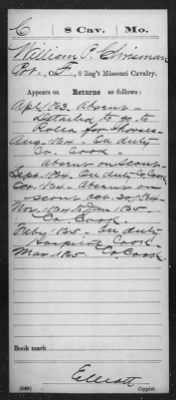 C 8 Cav. Mo.
William P. Chrisman
Pvt., Co. F, 8 Reg't Missouri Cavalry.
Appears on Returns as follows:
Apl 1863. Absent-
Detailed to go to
Rolla for Horses-
Aug. 1864- On duty
Co. Cook-
Absent on Scout-
Sept. 1864- On duty Co. Cook
Oct. 1864- Absent on
Scout Oct. 20, 64-
Nov. 1864 to Jan. 1865-
Co. Cook-
Feby 1865- On duty
Hospital Cook-
Mar 1865- Co Cook
Book mark
(546)
Elliott
Copyist.